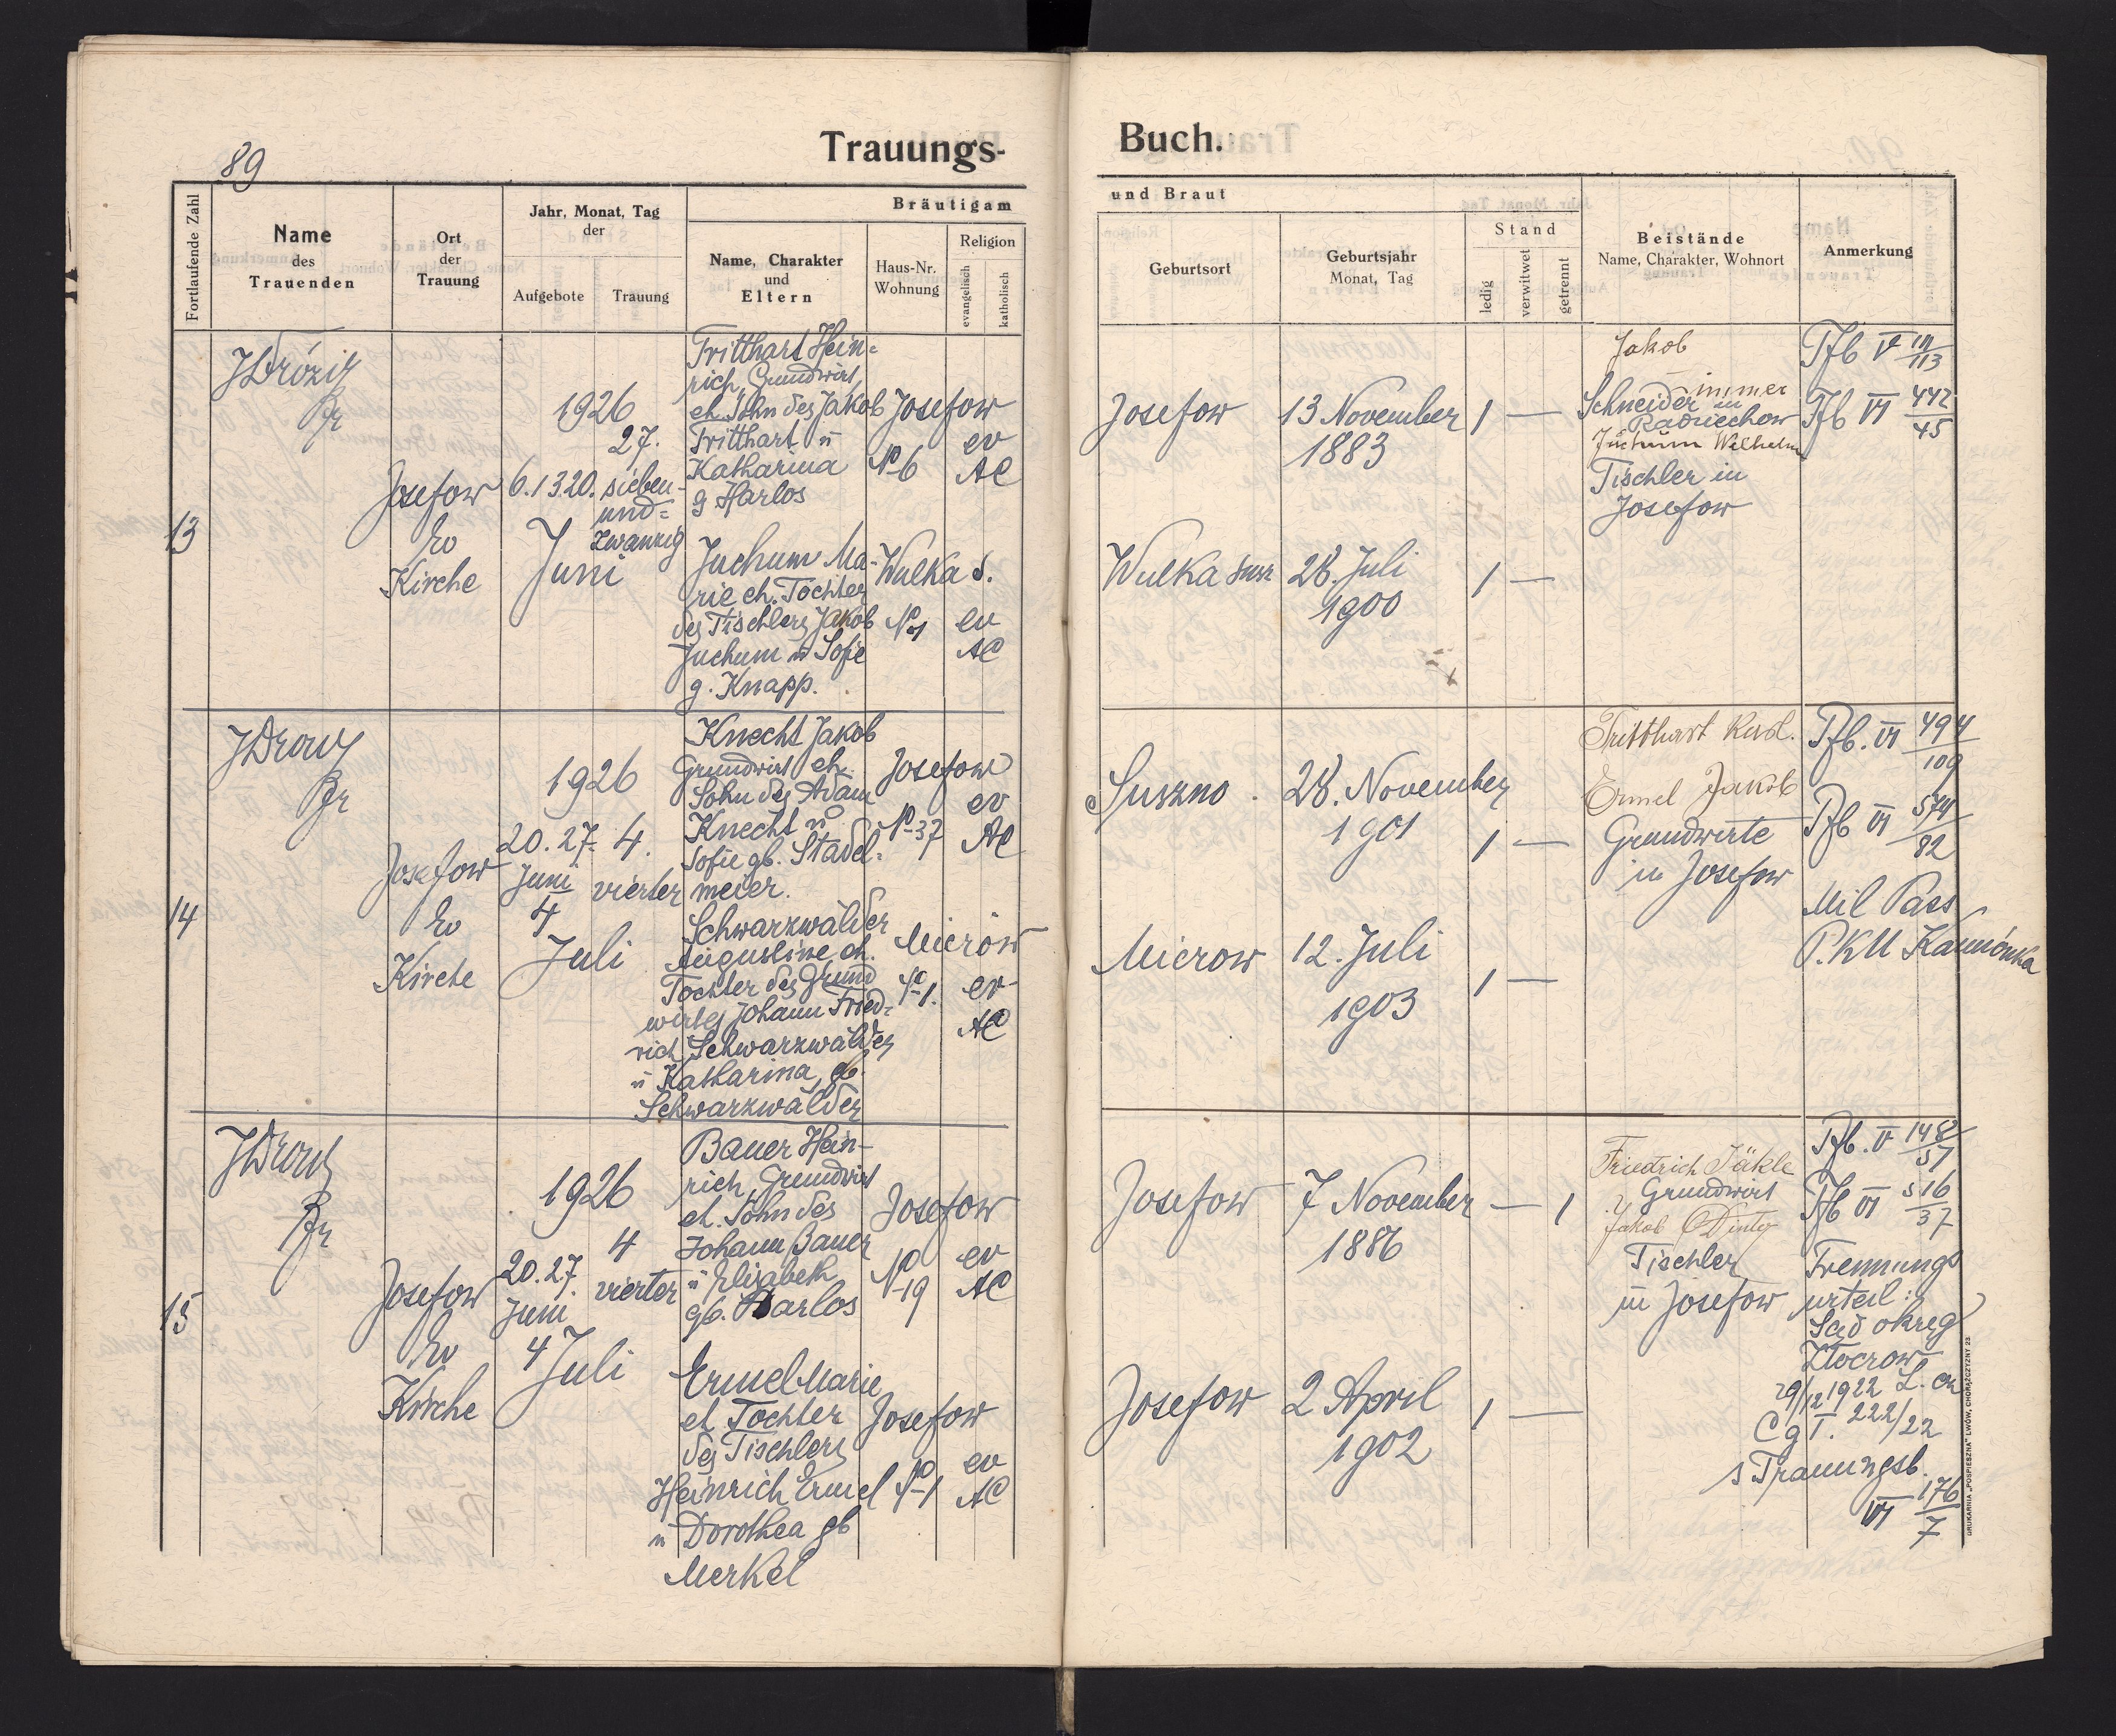 89
Trauungs-
Fortlaufende Zahl
Name
des
Trauenden
Ort
der
Trauung
Jahr, Monat, Tag
der
Aufgebote
Trauung
Bräutigam
Name, Charakter
und
Eltern
Haus-Nr.
Wohnung
Religion
evangelisch
katholisch
13
Josefow
Ev
Kirche
1926
6. 13 20.
27.
sieben-
und=
zwanzig
Juni
Tritthart Hein=
rich, Grundwirt,
eh. Sohn des Jakob
Tritthart u
Katharina
g Harlos
Josefow
No 6
ev
AC
Juchum Ma-
rie eh. Tochter
des Tischlers Jakob
Juchum u Sofie
g. Knapp.
Wulka s.
No 1
ev
AC
14
Josefow
Ev
Kirche
1926
20. 27.
Juni
4
4.
vierter
Juli
Knecht Jakob
Grundwirt eh.
Sohn des Adam
Knecht u
Sofie gb. Stadel=
meier.
Josefow
No 37
ev
AC
Schwarzwälder
Augustine eh.
Tochter des Grund
wirtes Johann Fried=
rich Schwarzwälder
u Katharina, gb.
Schwarzwälder
Mierów
No 1.
ev
AC
15
Josefow
Ev
Kirche
1926
20. 27.
Juni
4
4
vierter
Juli
Bauer Hein-
rich, Grundwirt
eh. Sohn des
Johann Bauer
u Elisabeth
gb. Harlos
Josefow
No 19
ev
AC
Ermel Marie
eh. Tochter
des Tischlers
Heinrich Ermel
u Dorothea gb
Merkel
Josefow
No 1
ev
AC
Buch.
und Braut
Geburtsort
Geburtsjahr
Monat, Tag
Stand
ledig
verwitwet
getrennt
Beistände
Name, Charakter, Wohnort
Anmerkung
Josefow
13 November
1883
1 —
Jakob
Schneider in
Radziechow
Juchum Wilhelm
Tischler in
Josefow
Pfb V 111/113
Pfb VI 442/45
Wulka susz
28. Juli
1900
1 —
Suszno
28. November
1901
1 —
Tritthart Karl.
Ermel Jakob
Grundwirte
in Josefow
Pfb. VI 494/109
Pfb VI 574/82
Mil Pass
P.KU Kamionka
Mierow
12. Juli
1903
1 —
Josefow
7 November
1886
— 1
Friedrich Jäkle
Grundwirt
Jakob
Tischler
in Josefow
Pfb. V 148/57
Pfb VI 516/37
Trennungs
urteil:
Sąd okręg
Złoczow
29/12 1922 L. cz
Cg I. 222/22
s Trauungsb.
VI 176/7
Josefow
2 April
1902
1 —
DRUKARNIA „POSPIESZNA" LWÓW, CHORĄŻCZYZNY 23